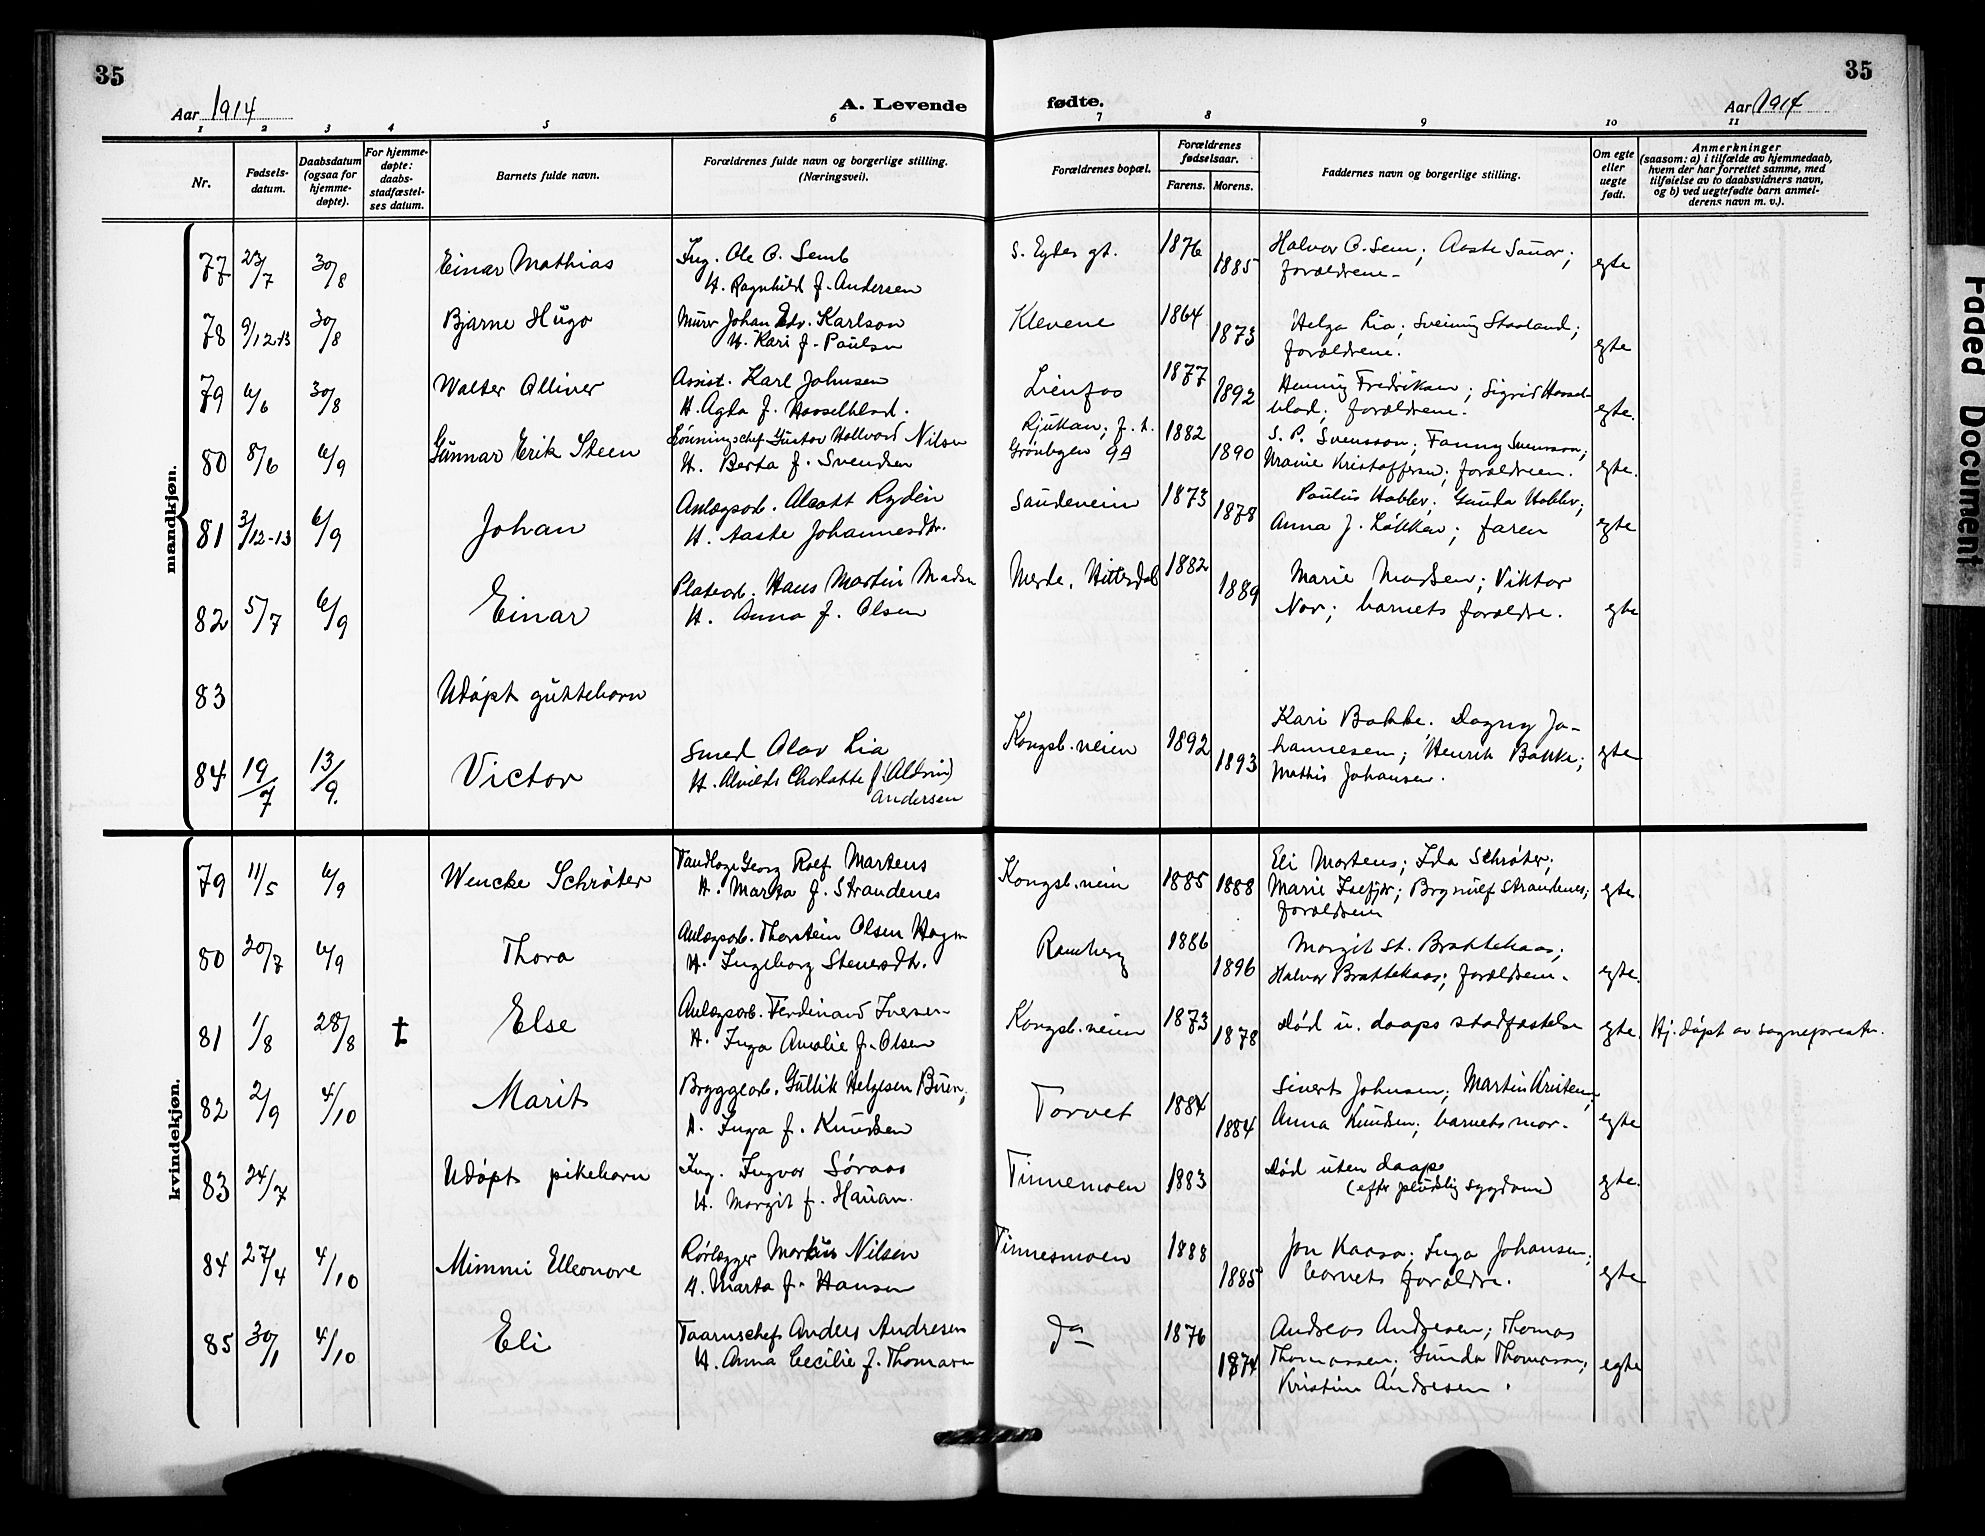 35
35
Aar 1914
A. Levende
fødte.
Aar 1914
1 2 3 4 5 6 7 8 9 10 11
Nr.
Fødsels-
datum.
Daabsdatum
(ogsaa for
hjemme-
døpte).
For hjemme-
døpte:
daabs-
stadfæstel-
ses datum.
Barnets fulde navn.
Forældrenes fulde navn og borgerlige stilling.
(Næringsvei).
Forældrenes bopæl.
Forældrenes
fødselsaar.
Farens. Morens.
Faddernes navn og borgerlige stilling.
Om egte
eller
uegte
født.
Anmerkninger
(saasom: a) i tilfælde av hjemmedaab,
hvem der har forrettet samme, med
tilføielse av to daabsvidners navn,
og b) ved uegtefødte barn anmel-
derens navn m. v.).
mandkjøn.
77 23/7 30/8 Einar Mathias Ing. Ole O. Semb S. Eydes gt. 1876 Halvor O. Sem; Aaste Sauar;
H. Ragnhild f. Andersen 1885 forældrene- egte
78 9/12-13 30/8 Bjarne Hugo Murer Johan Edv. Karlson Klevene 1864 Helga Lia; Sveinung Staaland;
H. Kari f. Paulsen 1873 forældrene. egte
79 6/6 30/8 Walter Olliver Assist. Karl Johnsen Lienfos 1877 Henning Fredriksen; Sigrid Hassel-
H. Agda f. Hasselblad. 1892 blad; forældrene. egte.
80 8/6 6/9 Gunnar Erik Steen Lønningschef Gustav Hallvard Nilsen Rjukan; f. t. 1882 S. P. Svensson; Fanny Svensson;
H. Berta f. Svendsen Grønbygen 9A 1890 Kristoffersen; forældrene. egte.
81 3/12-13 6/9 Johan Anlægsarb. Rydén Saudeveien 1873 Paulus Hobler; Gunda Hobler;
H. Aaste Johannesdtr. 1878 Anna J. Løkken; faren egte
82 5/7 6/9 Einar Platearb. Hans Martin Madsen Merde, Hitterdal 1882 Marie Madsen; Viktor
H. Anna f. Olsen 1889 Nor; barnets forældre. egte
83 Udøpt guttebarn
84 19/7 13/9. Victor Smed Olav Lia Kongsb.veien 1892 Kari Bakke; Dagny Jo-
H. Alvilda Charlotte f. (Aldrin) 1893 hannesen; Henrik Bakke; egte
Andersen Mathis Johansen.
kvindekjøn.
79 11/5 6/9 Wencke Schrøter Tandlæge Georg Rolf Martens Kongsb.veien 1885 1888 Eli Martens; Ida Schrøter;
H. Marta f. Strandenes Marie Isefjær; Brynulf Strandenes; egte.
forældrene
80 20/7 6/9 Thora Anlægsarb. Thorstein Olsen Hagen Ramberg 1886 Margit St. Brattekaas;
H. Ingeborg Steinersdtr. 1896 Halvor Brattekaas; forældrene. egte.
81 1/8 28/8 † Else Anlægsarb. Ferdinand Iversen Kongsb.veien 1873 død u. daaps stadfæstelse egte. Hj. døpt av sognepresten.
H. Inga Amalie f. Olsen 1878
82 2/9 4/10 Marit Bryggearb. Gullik Helgesen Buen; Torvet 1884 Sivert Johnsen; Martin Kristensen;
H. Inga f. Knudsen 1884 Anna Knudsen; barnets mor. egte
83 24/7 Udøpt pikebarn Ing. Ingvar Søraas Tinnemoen 1883 død uten daap
H. Margit f. Hauan. (efter pludslig sygdom) egte.
84 27/4 4/10 Mimmi Elleonore Rørlægger Markus Nilsen Tinnesmoen 1888 Jon Kaasa; Inga Johansen;
H. Marta f. Hansen 1885 barnets forældre. egte
85 30/1 4/10 Eli Taarnschef Anders Andresen Do 1876 Andreas Andresen; Thomas
H. Anna Cecilie f. Thomassen 1874 Thomassen; Gunda Thomassen; egte
Kristine Andresen.
Faded Document